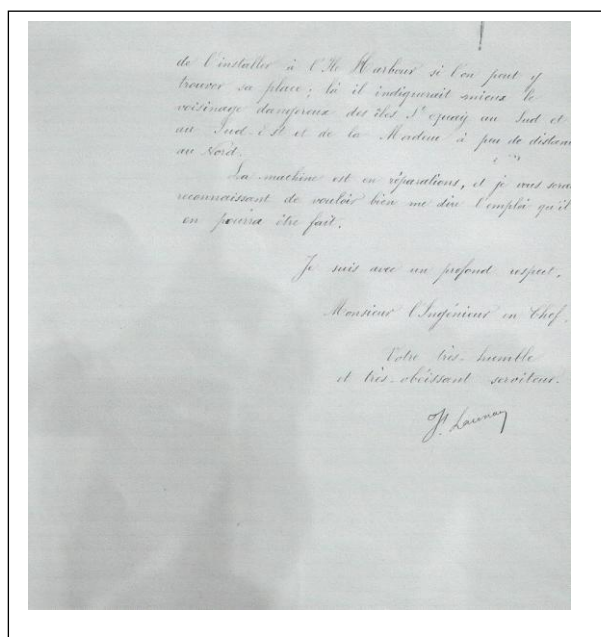 de l'installer à l'Ile Harbour si l'on peut y
trouver sa place; là il indiquerait mieux le
voisinage dangereux des îles St Quay au Sud et
au Sud-Est et de la Mordeu à peu de distan
au Nord.
La machine est en réparations, et je vous serai
reconnaissant de vouloir bien me dire l'emploi qu'il
en pourra être fait.
Je suis avec un profond respect.
Monsieur l'Ingénieur en Chef.
Votre très-humble
et très-obéissant serviteur.
Launay